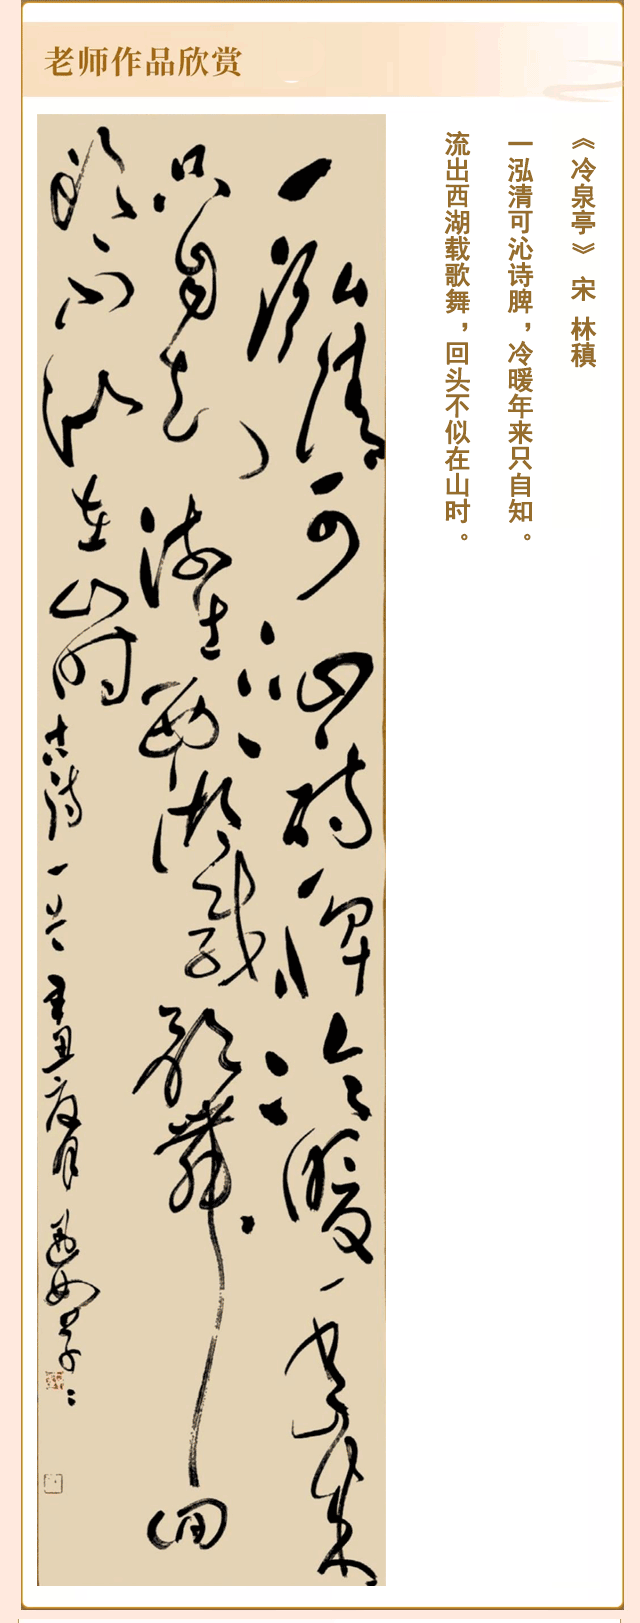 老师作品欣赏
《冷泉亭》 宋 林稹
一泓清可沁诗脾，冷暖年来只自知。
流出西湖载歌舞，回头不似在山时。
一泓清可沁诗脾冷暖年来
只自知流出西湖载歌舞回
头不似在山时 古诗一首 辛丑夏月